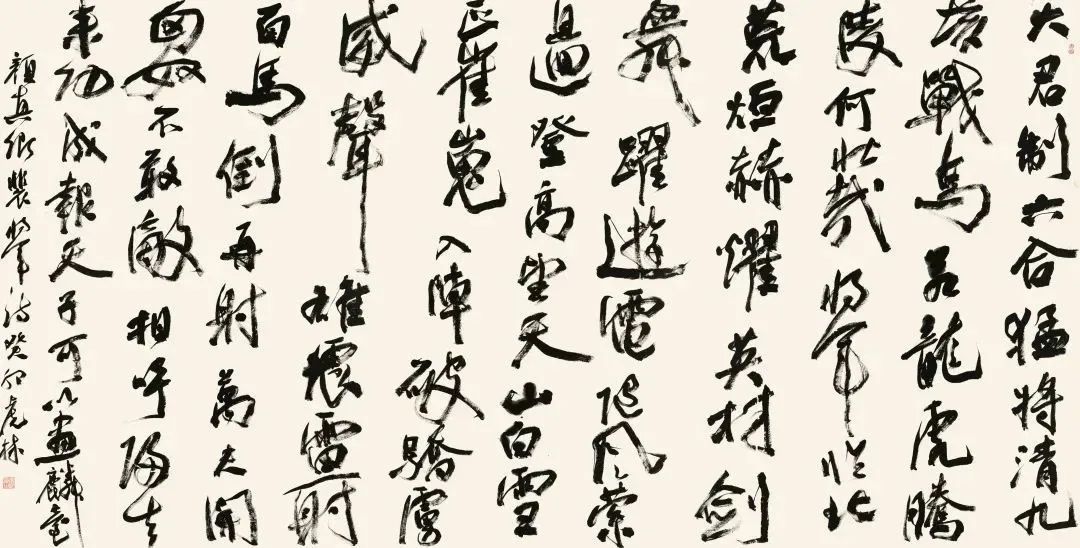 大君制六合猛将清九
垓戰馬若龍虎騰
陵何壯哉将军临北
荒烜赫燿英材劍
舞躍遊電随风縈
且迴登高望天山白雪
正崔嵬入陣破驕虜
威聲雄震雷射
百馬倒再射萬夫開
匈奴不敢敵相呼歸去
来功成報天子可以畫麟臺
顏真卿裴将军诗癸卯虎林